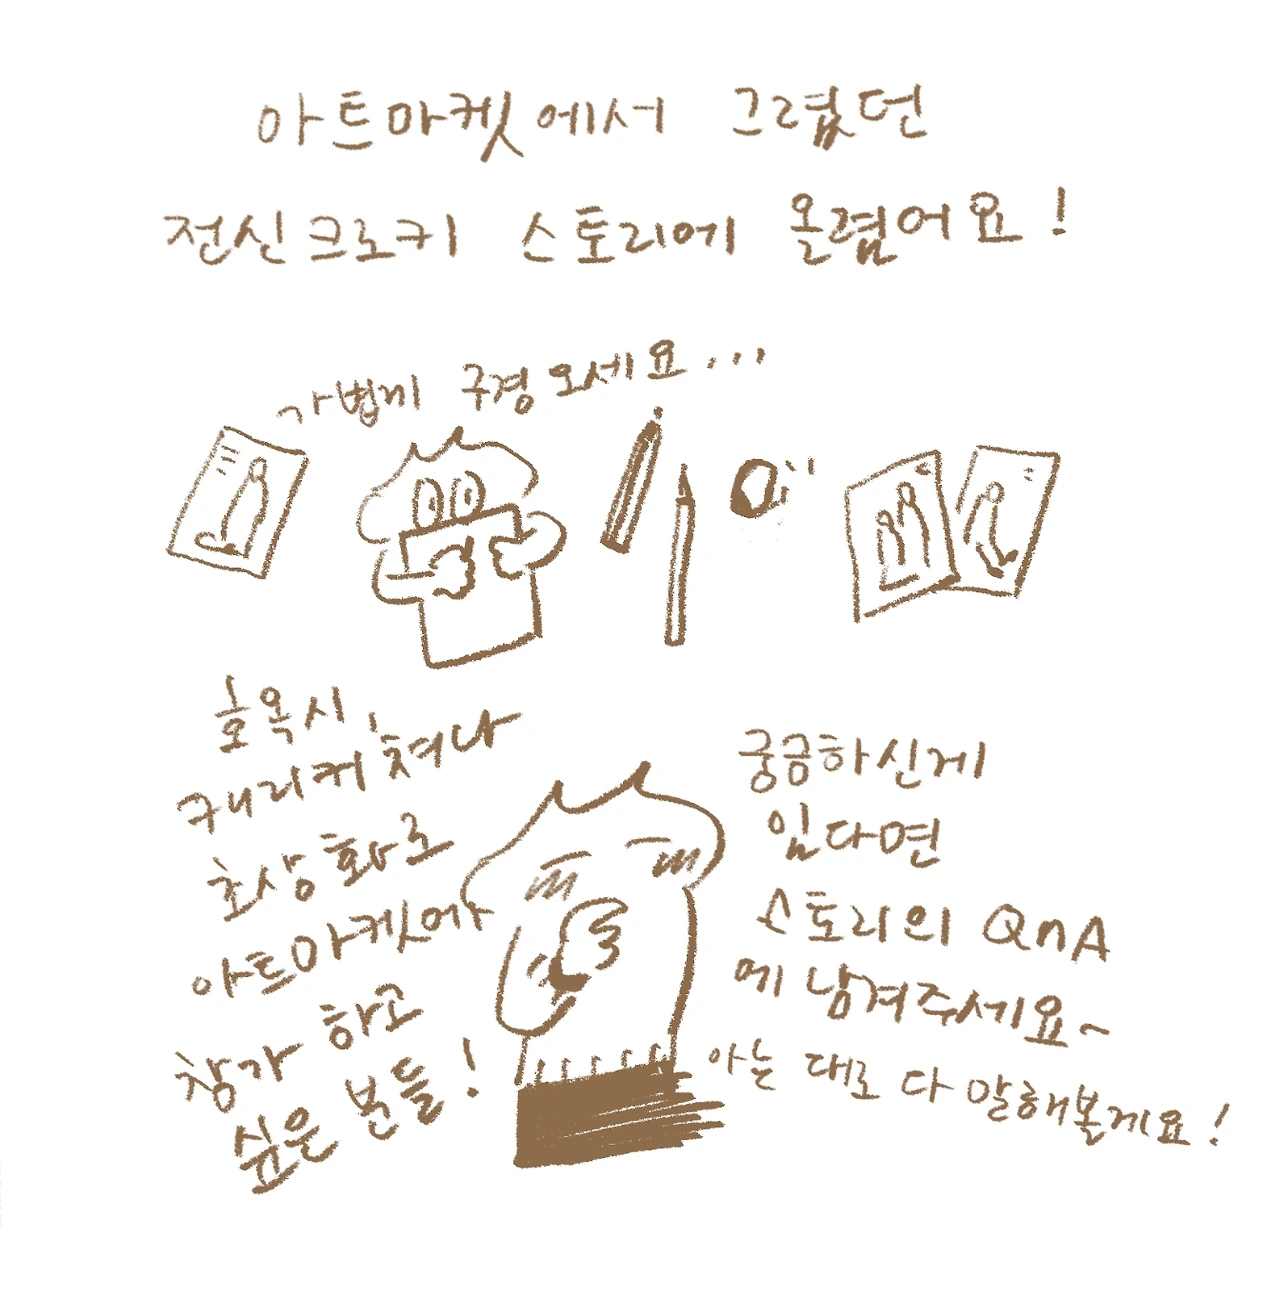 아트마켓에서 그렸던
전신크로키 스토리에 올렸어요!
가볍게 구경오세요...
혹옥시,
캐리커쳐나
초상화로
아트마켓에
참가 하고
싶은 분들!
궁금하신게
있다면
스토리의 QnA
에 남겨주세요~
아는 대로 다 말해볼게요!